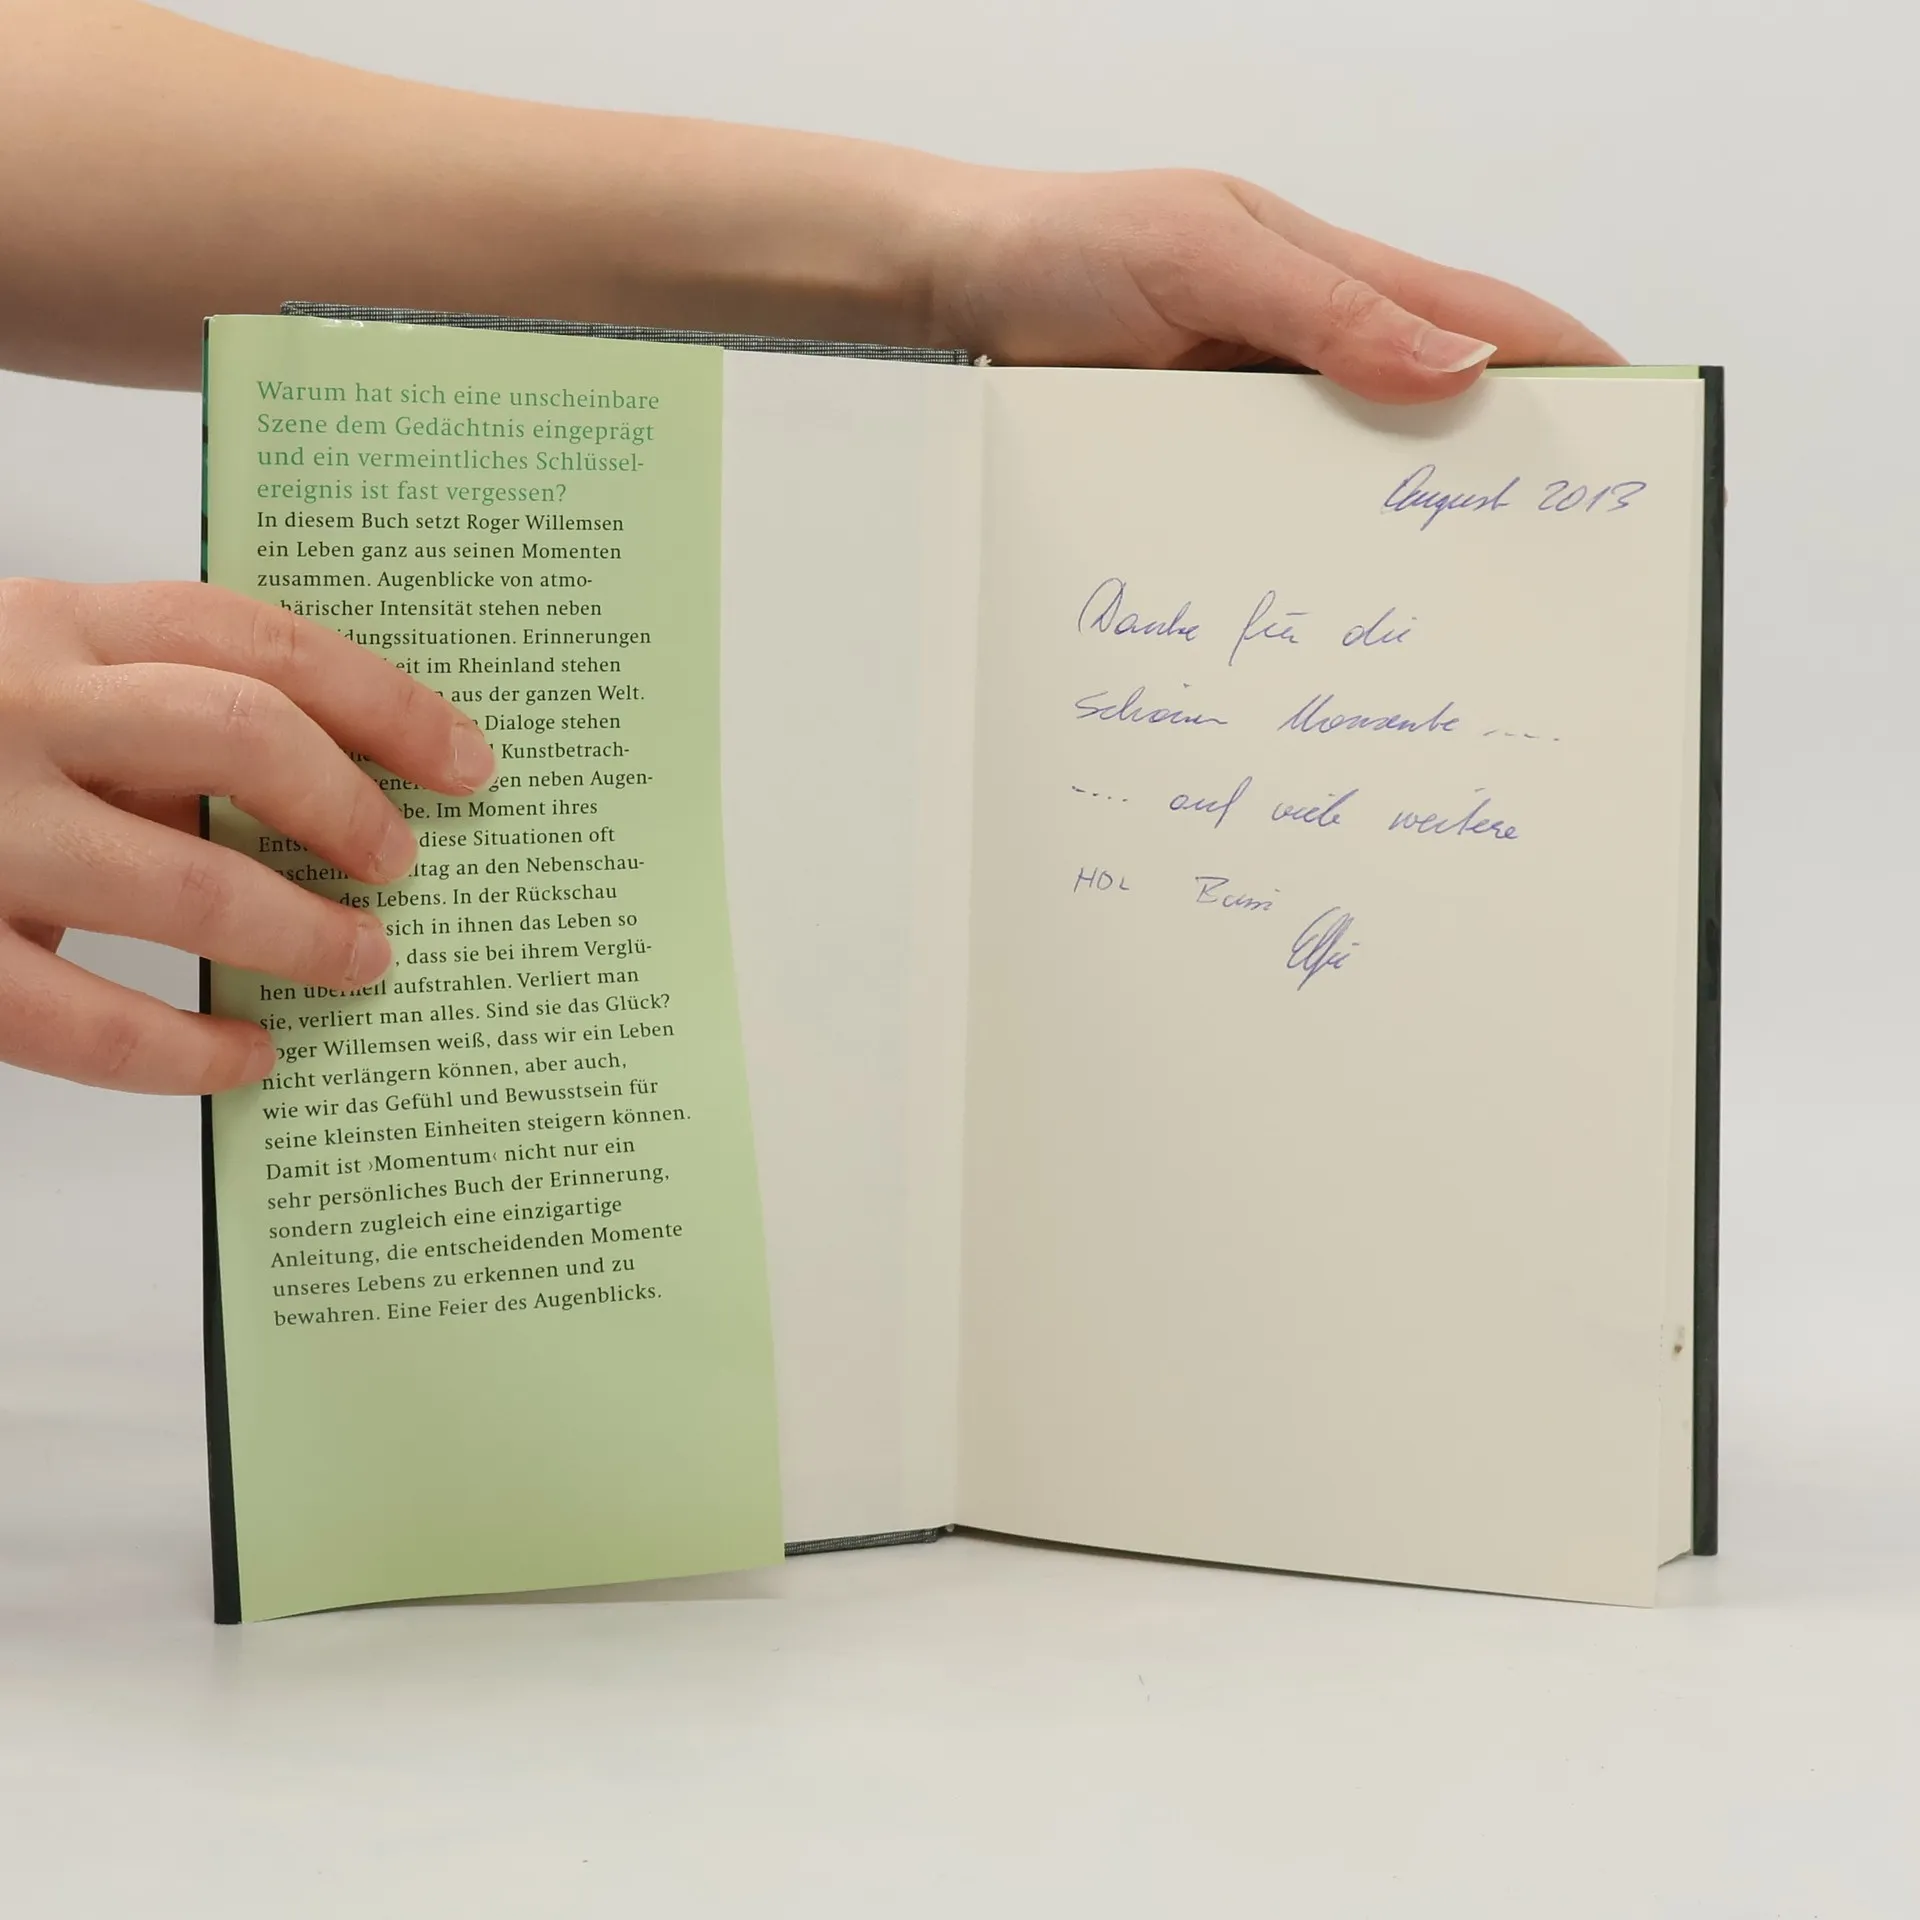 Warum hat sich eine unscheinbare
Szene dem Gedächtnis eingeprägt
und ein vermeintliches Schlüssel-
ereignis ist fast vergessen?
In diesem Buch setzt Roger Willemsen
ein Leben ganz aus seinen Momenten
zusammen. Augenblicke von atmo-
härischer Intensität stehen neben
dungssituationen. Erinnerungen
eit im Rheinland stehen
aus der ganzen Welt.
Dialoge stehen
Kunstbetrach-
gen neben Augen-
be. Im Moment ihres
diese Situationen oft
ltag an den Nebenschau-
des Lebens. In der Rückschau
sich in ihnen das Leben so
, dass sie bei ihrem Verglü-
hen überhell aufstrahlen. Verliert man
sie, verliert man alles. Sind sie das Glück?
oger Willemsen weiß, dass wir ein Leben
nicht verlängern können, aber auch,
wie wir das Gefühl und Bewusstsein für
seine kleinsten Einheiten steigern können.
Damit ist ›Momentum‹ nicht nur ein
sehr persönliches Buch der Erinnerung,
sondern zugleich eine einzigartige
Anleitung, die entscheidenden Momente
unseres Lebens zu erkennen und zu
bewahren. Eine Feier des Augenblicks.
August 2013
Danke für die
schönen Momente ....
.... auf viele weitere
HDL